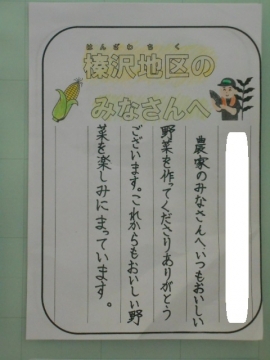 はんざわちく
榛沢地区の
みなさんへ
農家のみなさんへ、いつもおいしい
野菜を作ってくださりありがとう
ございます。これからもおいしい野
菜を楽しみにまっています。